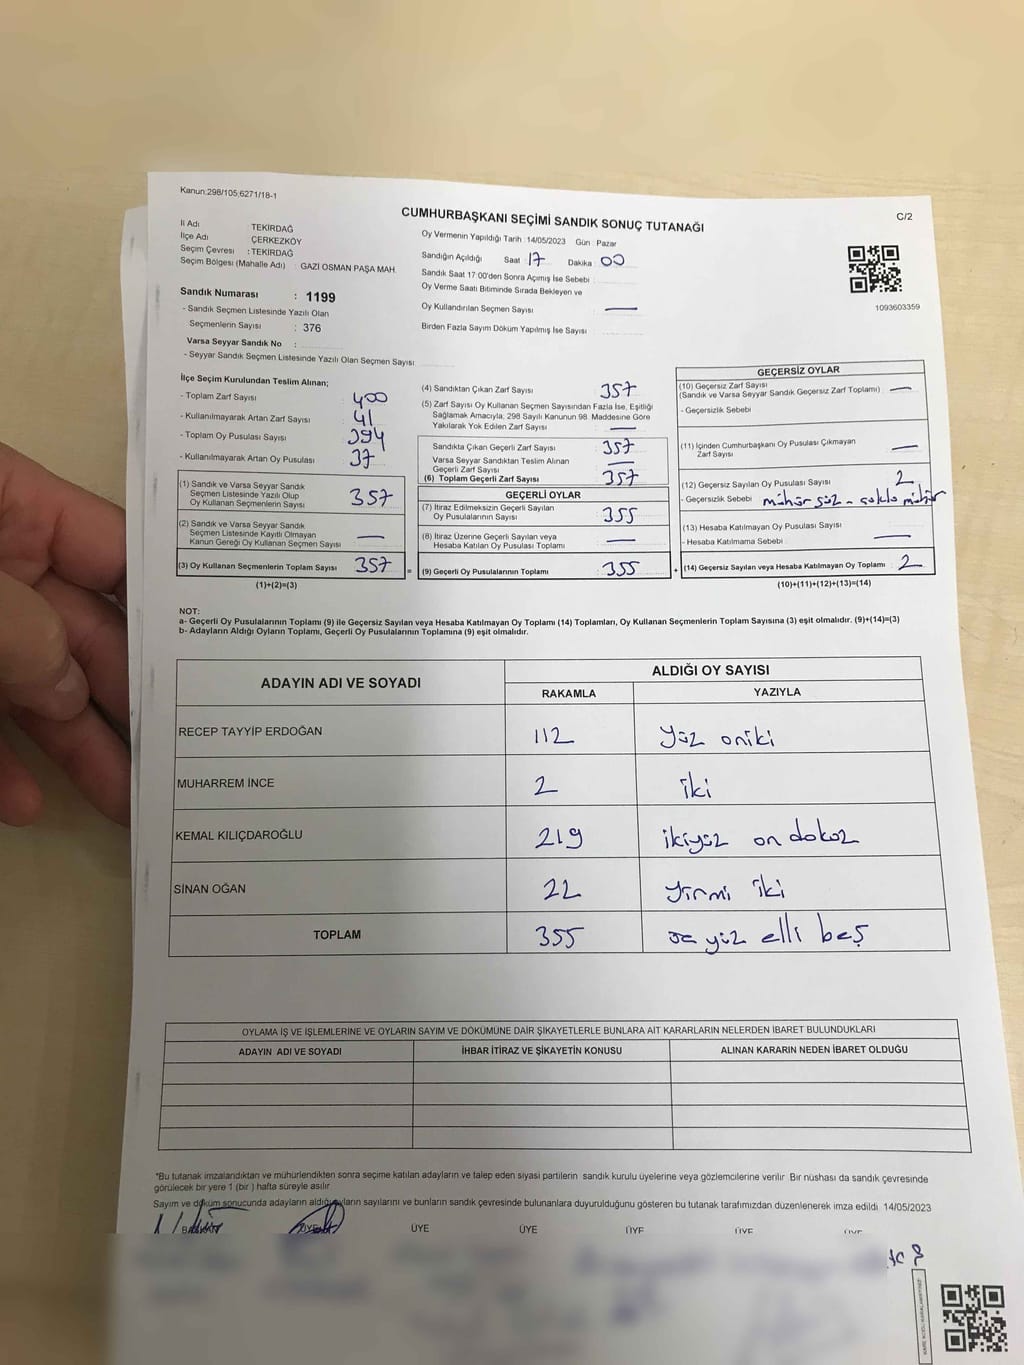 Kanun.298/105,6271/18-1
CUMHURBAŞKANI SEÇİMİ SANDIK SONUÇ TUTANAĞI
C/2
İl Adı TEKİRDAĞ
İlçe Adı ÇERKEZKÖY
Seçim Çevresi : TEKİRDAĞ
Seçim Bölgesi (Mahalle Adı) : GAZİ OSMAN PAŞA MAH.
Sandık Numarası : 1199
- Sandık Seçmen Listesinde Yazılı Olan
Seçmenlerin Sayısı : 376
Varsa Seyyar Sandık No :
- Seyyar Sandık Seçmen Listesinde Yazılı Olan Seçmen Sayısı
Oy Vermenin Yapıldığı Tarih : 14/05/2023 Gün : Pazar
Sandığın Açıldığı Saat : 17 Dakika : 00
Sandık Saat 17:00'den Sonra Açımış İse Sebebi :
Oy Verme Saati Bitiminde Sırada Bekleyen ve
Oy Kullandırılan Seçmen Sayısı : —
Birden Fazla Sayım Döküm Yapılmış İse Sayısı :
1093603359
İlçe Seçim Kurulundan Teslim Alınan;
- Toplam Zarf Sayısı : 400
- Kullanılmayarak Artan Zarf Sayısı : 41
- Toplam Oy Pusulası Sayısı : 394
- Kullanılmayarak Artan Oy Pusulası : 37
(1) Sandık ve Varsa Seyyar Sandık
Seçmen Listesinde Yazılı Olup
Oy Kullanan Seçmenlerin Sayısı : 357
(2) Sandık ve Varsa Seyyar Sandık
Seçmen Listesinde Kayıtlı Olmayan
Kanun Gereği Oy Kullanan Seçmen Sayısı : —
(3) Oy Kullanan Seçmenlerin Toplam Sayısı : 357
(1)+(2)=(3)
(4) Sandıktan Çıkan Zarf Sayısı : 357
(5) Zarf Sayısı Oy Kullanan Seçmen Sayısından Fazla İse, Eşitliği
Sağlamak Amacıyla; 298 Sayılı Kanunun 98. Maddesine Göre
Yakılarak Yok Edilen Zarf Sayısı : —
Sandıkta Çıkan Geçerli Zarf Sayısı : 357
Varsa Seyyar Sandıktan Teslim Alınan
Geçerli Zarf Sayısı : —
(6) Toplam Geçerli Zarf Sayısı : 357
GEÇERLİ OYLAR
(7) İtiraz Edilmeksizin Geçerli Sayılan
Oy Pusulalarının Sayısı : 355
(8) İtiraz Üzerine Geçerli Sayılan veya
Hesaba Katılan Oy Pusulası Toplamı : —
= (9) Geçerli Oy Pusulalarının Toplamı : 355
GEÇERSİZ OYLAR
(10) Geçersiz Zarf Sayısı
(Sandık ve Varsa Seyyar Sandık Geçersiz Zarf Toplamı) : —
- Geçersizlik Sebebi :
(11) İçinden Cumhurbaşkanı Oy Pusulası Çıkmayan
Zarf Sayısı : —
(12) Geçersiz Sayılan Oy Pusulası Sayısı : 2
- Geçersizlik Sebebi : mühür süz -
(13) Hesaba Katılmayan Oy Pusulası Sayısı :
- Hesaba Katılmama Sebebi : —
+ (14) Geçersiz Sayılan veya Hesaba Katılmayan Oy Toplamı : 2
(10)+(11)+(12)+(13)=(14)
NOT:
a- Geçerli Oy Pusulalarının Toplamı (9) ile Geçersiz Sayılan veya Hesaba Katılmayan Oy Toplamı (14) Toplamları, Oy Kullanan Seçmenlerin Toplam Sayısına (3) eşit olmalıdır. (9)+(14)=(3)
b- Adayların Aldığı Oyların Toplamı, Geçerli Oy Pusulalarının Toplamına (9) eşit olmalıdır.
ADAYIN ADI VE SOYADI
ALDIĞI OY SAYISI
RAKAMLA YAZIYLA
RECEP TAYYİP ERDOĞAN 112 Yüz oniki
MUHARREM İNCE 2 iki
KEMAL KILIÇDAROĞLU 219 ikiyüz on dokuz
SİNAN OĞAN 22 yirmi iki
TOPLAM 355 üç yüz elli beş
OYLAMA İŞ VE İŞLEMLERİNE VE OYLARIN SAYIM VE DÖKÜMÜNE DAİR ŞİKAYETLERLE BUNLARA AİT KARARLARIN NELERDEN İBARET BULUNDUKLARI
ADAYIN ADI VE SOYADI İHBAR İTİRAZ VE ŞİKAYETİN KONUSU ALINAN KARARIN NEDEN İBARET OLDUĞU
*Bu tutanak imzalandıktan ve mühürlendikten sonra seçime katılan adayların ve talep eden siyasi partilerin sandık kurulu üyelerine veya gözlemcilerine verilir Bir nüshası da sandık çevresinde
görülecek bir yere 1 (bir) hafta süreyle asılır
Sayım ve döküm sonucunda adayların aldığı oyların sayılarını ve bunların sandık çevresinde bulunanlara duyurulduğunu gösteren bu tutanak tarafımızdan düzenlenerek imza edildi 14/05/2023
BAŞKAN ÜYE ÜYE ÜYE ÜYE ÜYE ÜYE